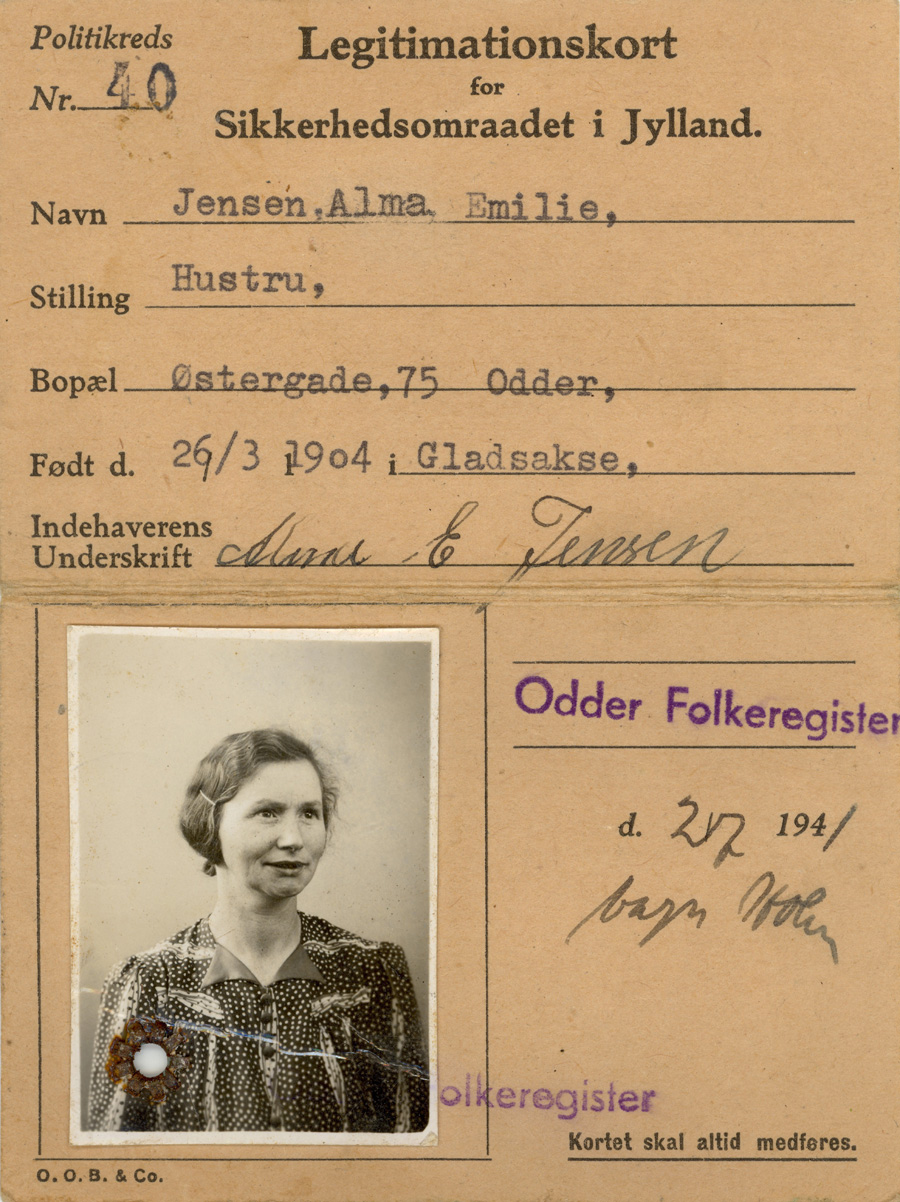 Politikreds
Nr. 40
Legitimationskort
for
Sikkerhedsomraadet i Jylland.
Navn Jensen, Alma Emilie,
Stilling Hustru,
Bopæl Østergade, 75 Odder,
Født d. 26/3 1904 i Gladsakse,
Indehaverens
Underskrift Alma E Jensen
Odder Folkeregister
d. 1941
olkeregister
Kortet skal altid medføres.
O. O. B. & Co.